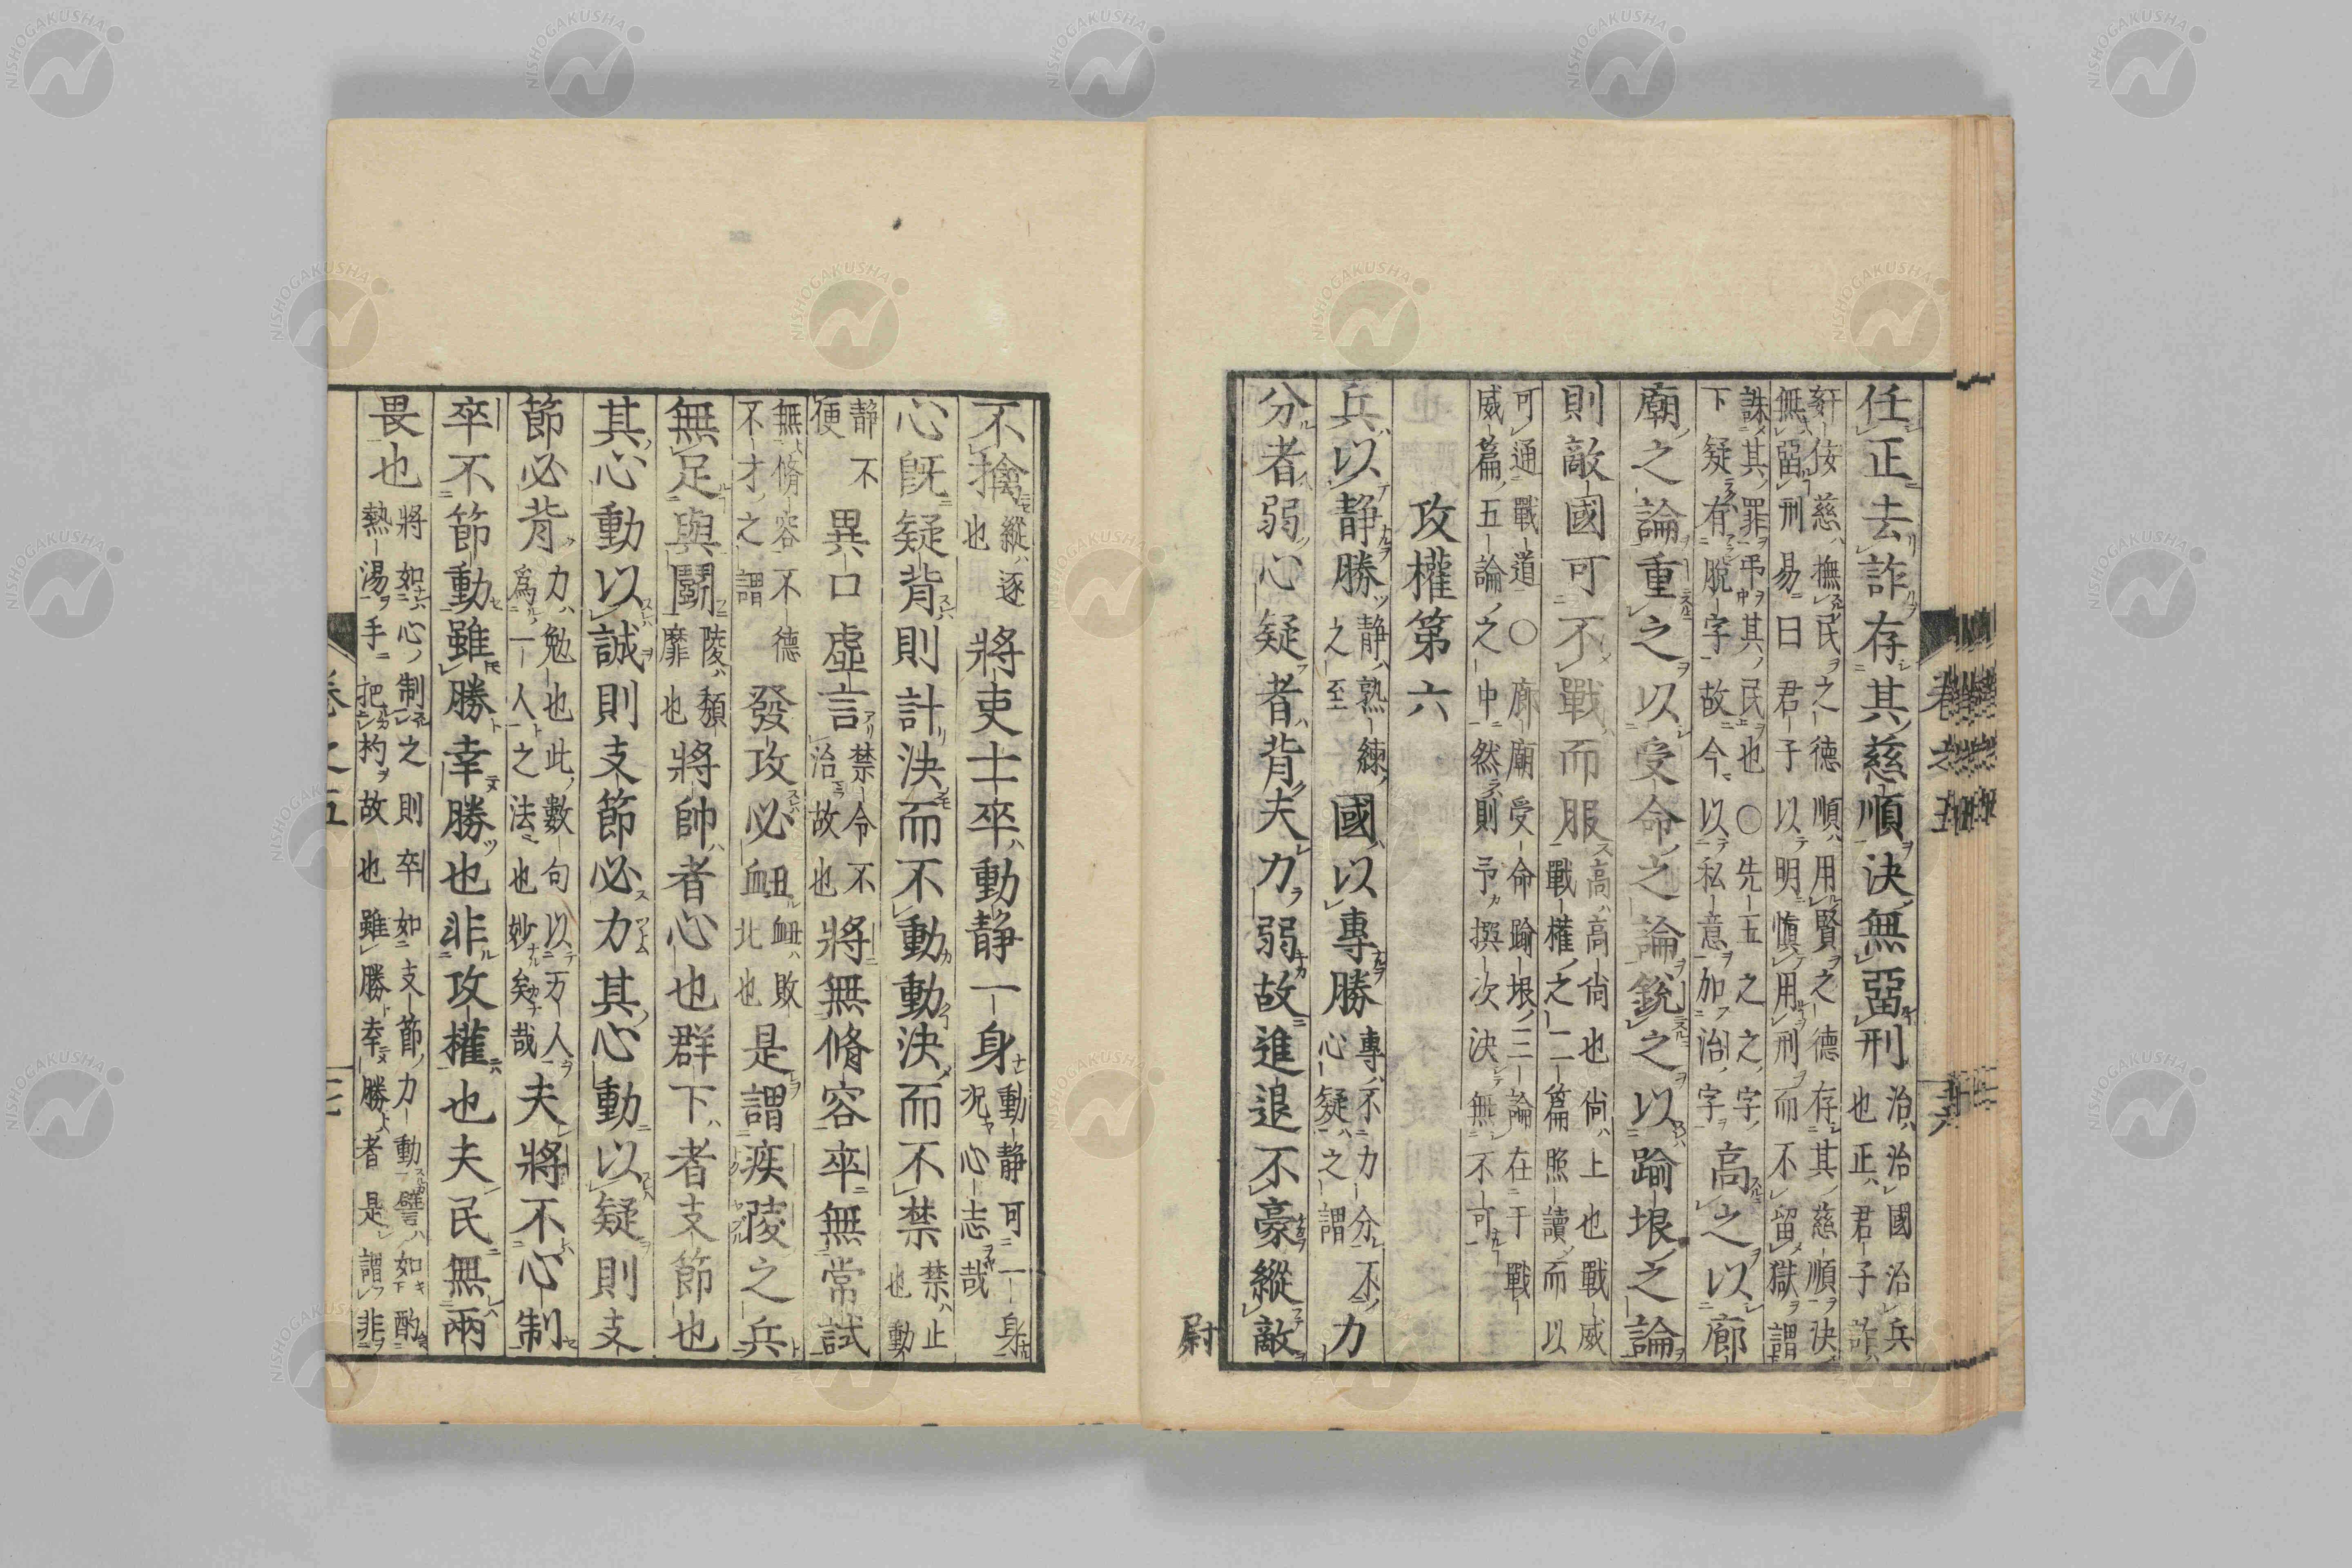 任正去詐存其慈順決無畱刑 治治國治兵 也正君子詐
姧佞慈撫民之德順用賢之德存其慈順決
無畱刑易曰君子以明愼用刑而不留獄謂
誅其罪弔其民也○先五之之字
下疑有脫字故今以私意加治字 高之以廊
廟之論重之以受命之論銳之以踰垠之論
則敵國可不戰而服 高高尙也尙上也戰威 戰權之二篇照讀而以
可通戰道○廊廟受命踰垠三論在于戰
威篇五論之中然則予撰次決無不可
攻權第六
兵以静勝 静熟練 之至 國以專勝 專不力分不 心疑之謂 力
分者弱心疑者背夫力弱故進退不豪縱敵
尉
卷之五
不擒 縱逐 也 將吏士卒動静一身 動静可一身 况心志哉
心旣疑背則計決而不動動決而不禁 禁止 也動
静不 便 異口虛言 禁令不 治故也 將無脩容卒無常試
無脩容不德 不才之謂 發攻必衄 衄敗 北也 是謂疾陵之兵
無足與鬪 陵頽 靡也 將帥者心也群下者支節也
其心動以誠則支節必力其心動以疑則支
節必背 力勉也此數句以万人 爲一人之法也妙矣哉 夫將不心制
卒不節動雖勝幸勝也非攻權也夫民無兩
畏也 將如心制之則卒如支節力動譬如酌 熱湯手把杓故也雖勝幸勝者是謂非
卷之五